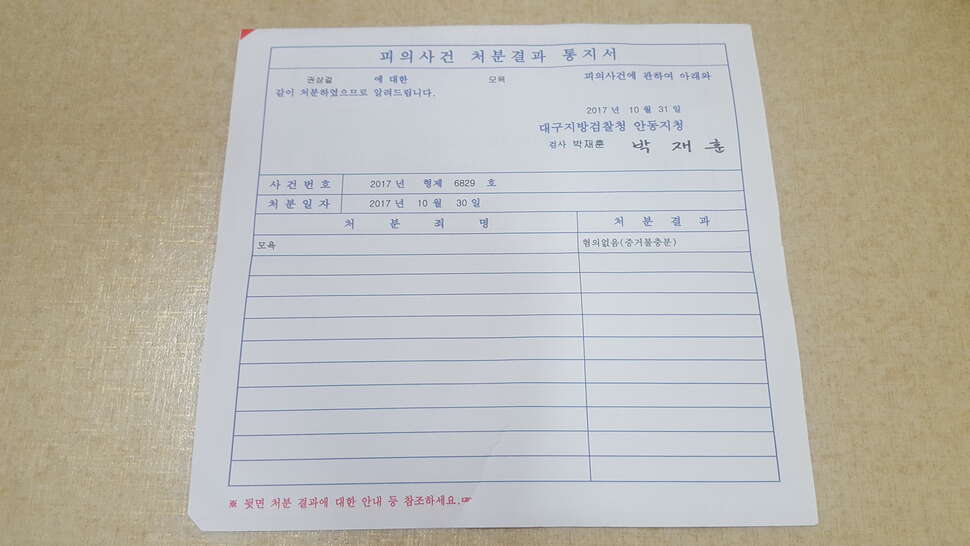 피의사건 처분결과 통지서
권상길 에 대한 모욕 피의사건에 관하여 아래와
같이 처분하였으므로 알려드립니다.
2017 년 10 월 31 일
대구지방검찰청 안동지청
검사 박재훈 박재훈
사건번호 2017 년 형제 6829 호
처분일자 2017 년 10 월 30 일
처 분 죄 명 처 분 결 과
모욕 혐의없음(증거불충분)
※ 뒷면 처분 결과에 대한 안내 등 참조하세요.☞